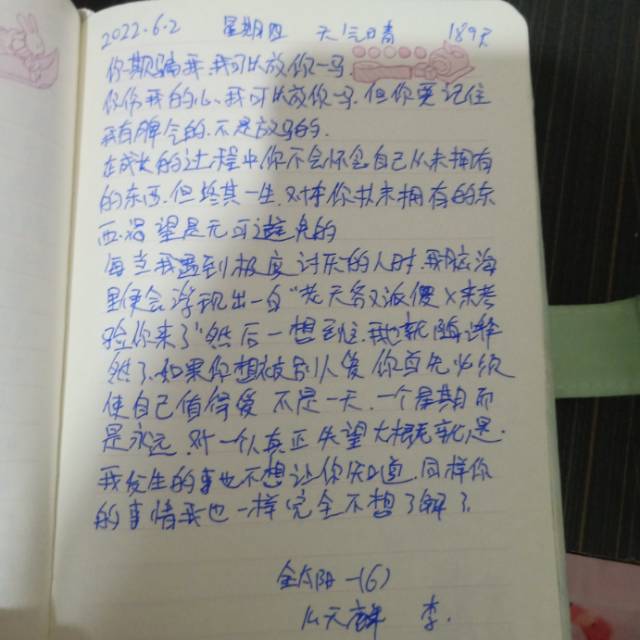 2022.6.2 星期四 天气晴 189天
你欺骗我,我可以放你一马
你伤我的心,我可以放你一马,但你要记住
我有脾气的,不是放马的.
在成长的过程中你不会怀念自己从未拥有
的东西,但终其一生,对你从未拥有的东
西,渴望是无可避免的
每当我遇到极度讨厌的人时,我脑海
里便会浮现出一句“老天爷又派傻X来考
验你来了”然后一想到这,我也就随
然了.如果你想被别人爱,你首先必须
使自己值得爱,不是一天,一个星期,而
是永远.对一个人真正失望大概就是.
我发生的事也不想让你知道,同样你
的事情我也一样完全不想了解了.
(6)
李.